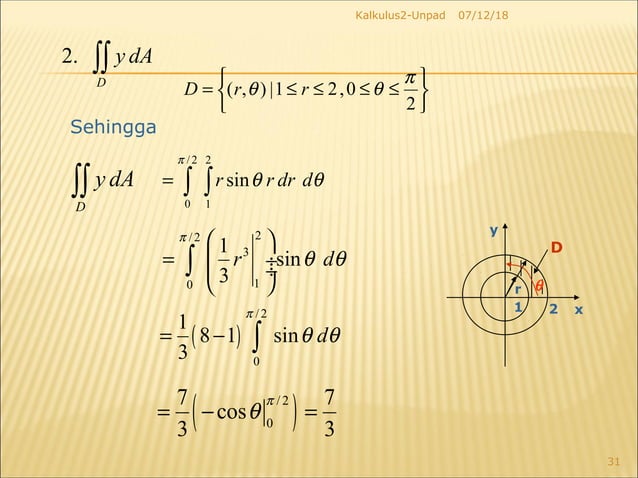 Kalkulus2-Unpad 07/12/18
2. ∬_D y dA
D = {(r,θ) | 1 ≤ r ≤ 2, 0 ≤ θ ≤ π/2}
Sehingga
∬_D y dA = ∫_0^{π/2} ∫_1^2 r sin θ r dr dθ
= ∫_0^{π/2} (1/3 r^3 |_1^2 ÷÷ ) sin θ dθ
= 1/3 (8 − 1) ∫_0^{π/2} sin θ dθ
= 7/3 (−cos θ |_0^{π/2}) = 7/3
y
D
θ
r
1 2 x
31